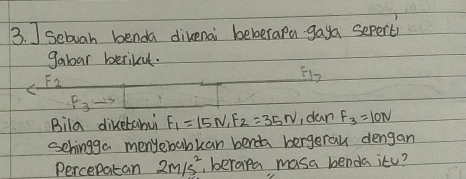 3.] Sebuah benda dikenai beberapa gaya seperti
gabar berikut.
F2
F1
F3
Bila diketahui F1 = 15 N, F2 = 35 N, dan F3 = 10N
sehingga menyebabkan benda bergerak dengan
Percepatan 2M/s², berapa masa benda itu?